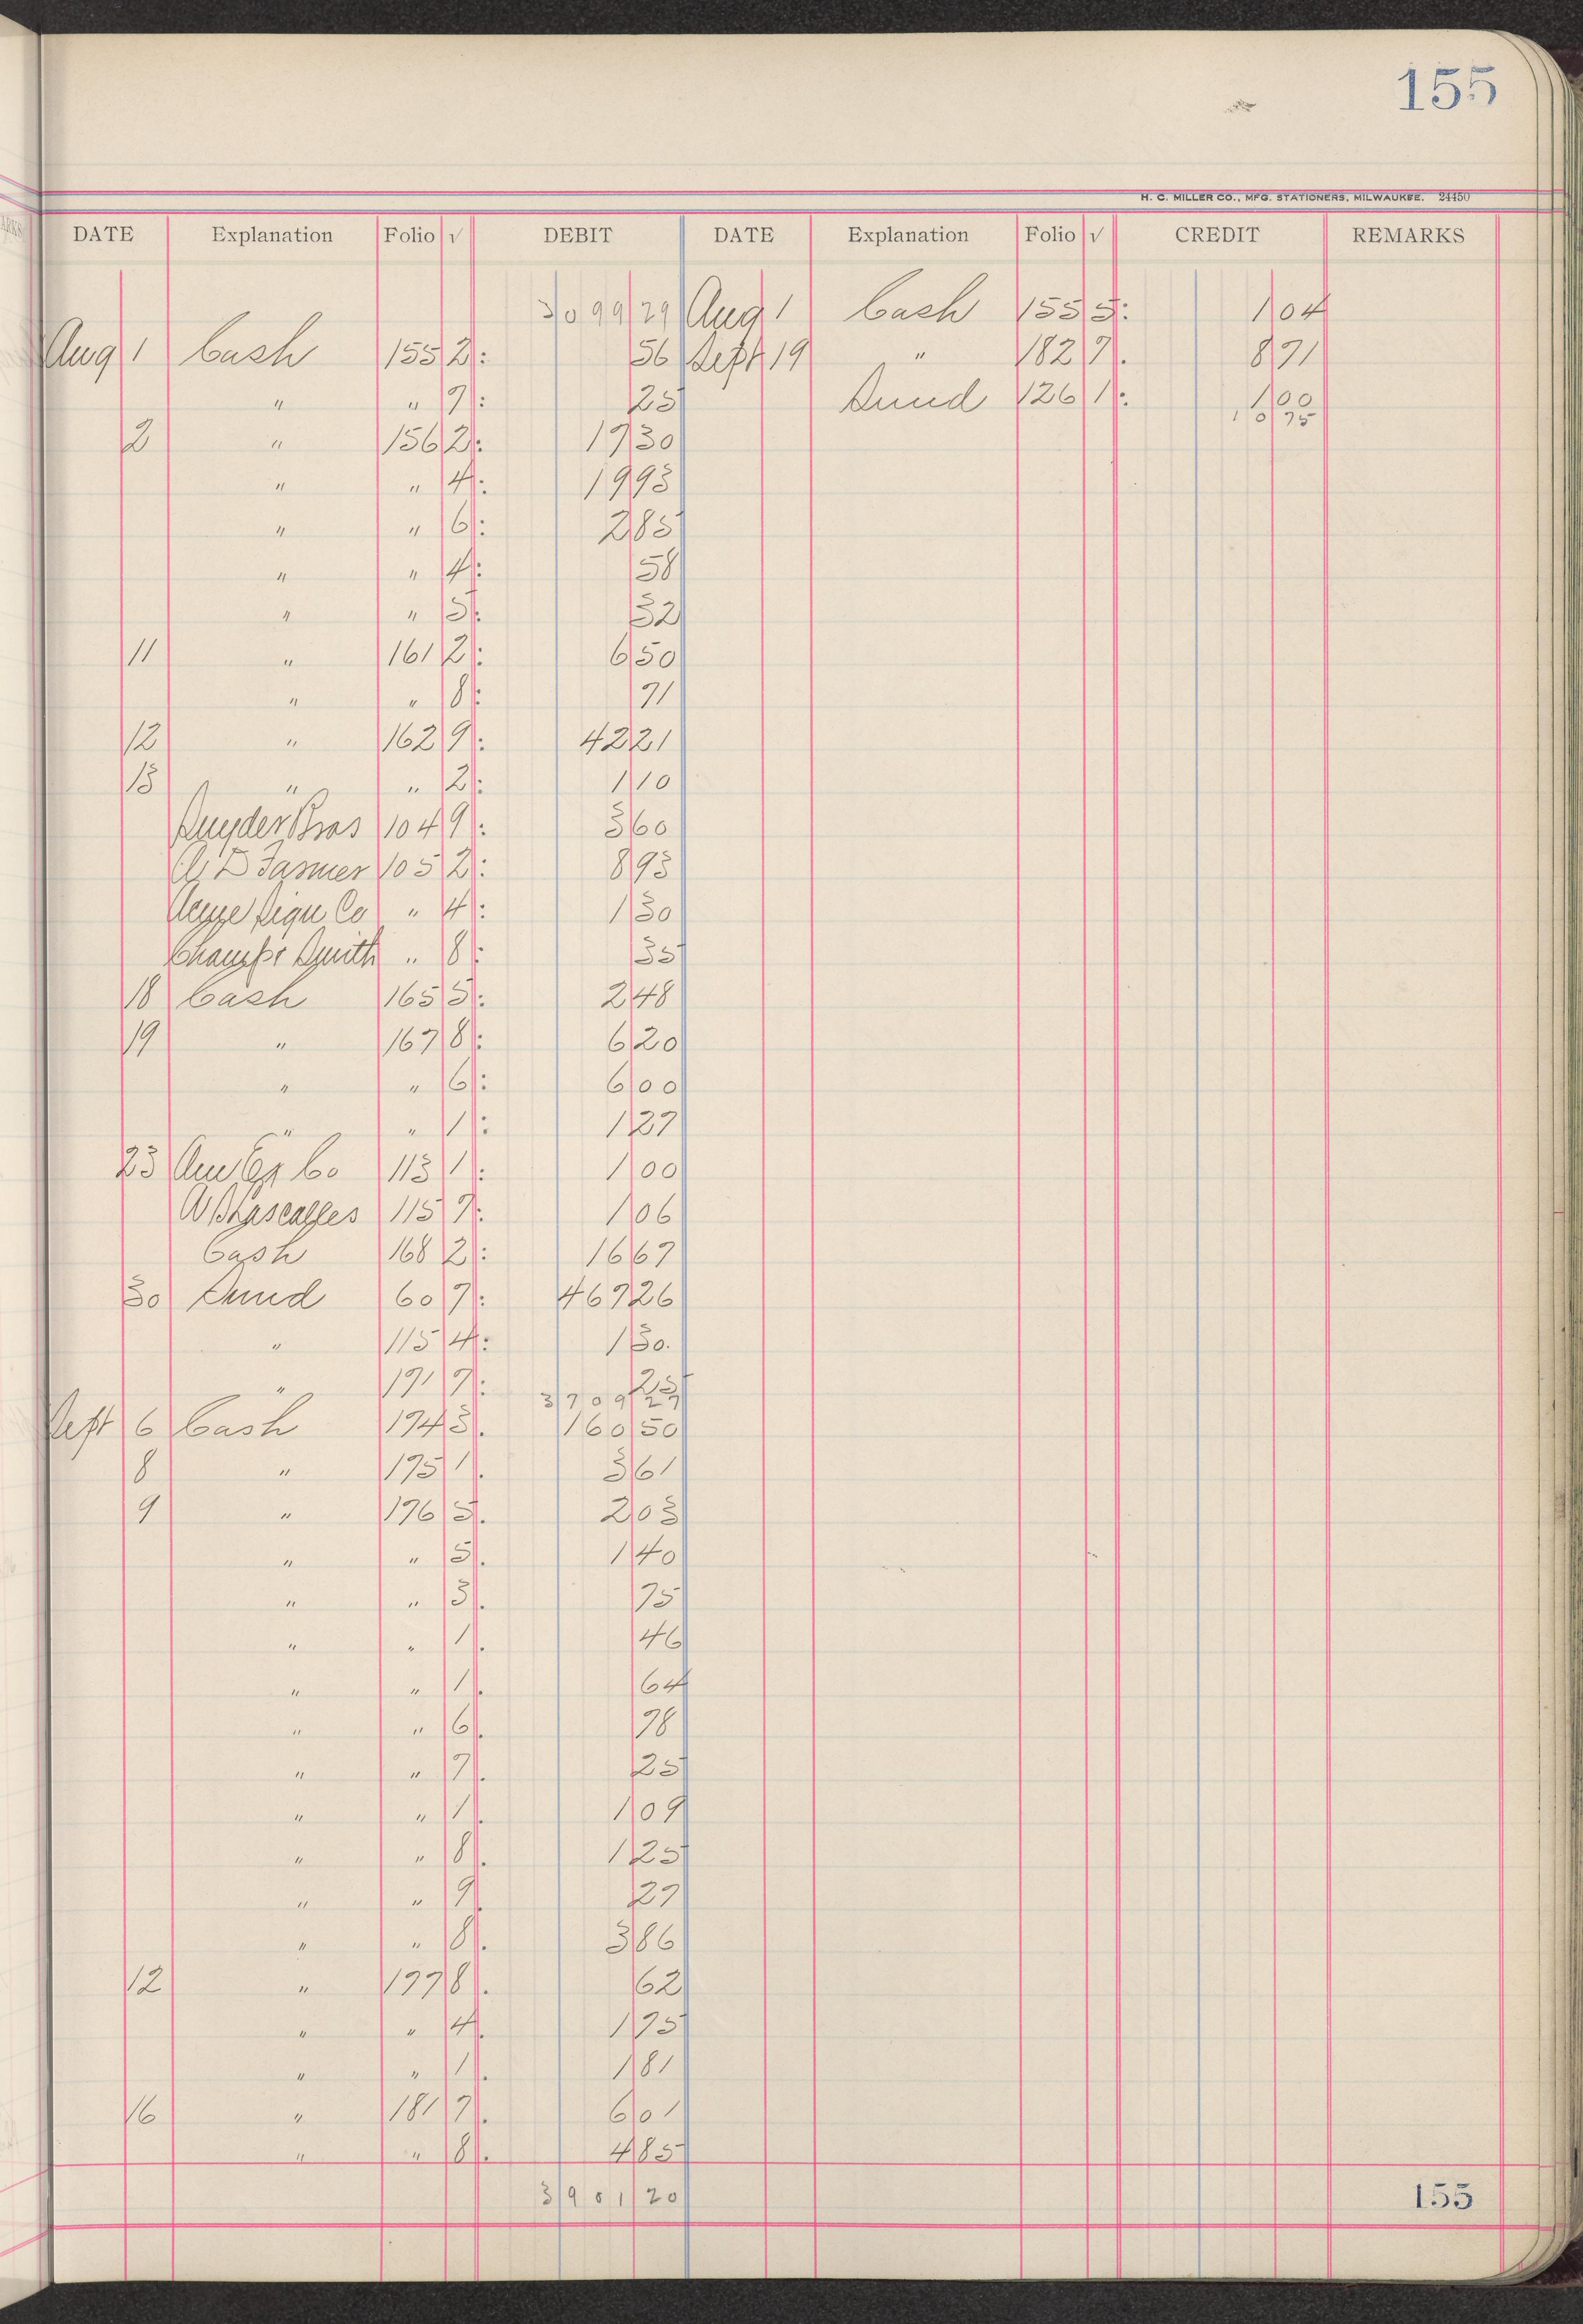 155
H. C. MILLER CO., MFG. STATIONERS, MILWAUKEE. 24450
DATE Explanation Folio √ DEBIT DATE Explanation Folio √ CREDIT REMARKS
3099 29 Aug 1 Cash 155 5 : 1 04
Aug 1 Cash 155 2 : 56 Sept 19 " 182 7 . 8 71
" " 7 : 25 Sund 126 1 : 1 00
2 " 156 2 : 17 30 10 75
" " 4 : 19 93
" " 6 : 2 85
" " 4 : 58
" " 5 : 32
11 " 161 2 : 6 50
" " 8 : 71
12 " 162 9 : 42 21
13 " " 2 : 1 10
Snyder Bros 104 9 : 3 60
Farmer 105 2 : 8 93
Co " 4 : 1 30
Smith " 8 : 35
18 Cash 165 5 : 2 48
19 " 167 8 : 6 20
" " 6 : 6 00
" " 1 : 1 27
23 Am Ex Co 113 1 : 1 00
115 7 : 1 06
Cash 168 2 : 16 67
30 Sund 60 7 : 467 26
" 115 4 : 1 30.
" 171 7 : 25
3709 29
Sept 6 Cash 174 3 . 160 50
8 " 175 1 . 3 61
9 " 176 5 . 2 03
" " 5 . 1 40
" " 3 . 75
" " 1 . 46
" " 1 . 64
" " 6 . 78
" " 7 . 25
" " 1 . 1 09
" " 8 . 1 25
" " 9 . 27
" " 8 . 3 86
12 " 177 8 . 62
" " 4 . 1 75
" " 1 . 1 81
16 " 181 7 . 6 01
" " 8 . 4 85
3901 20
155